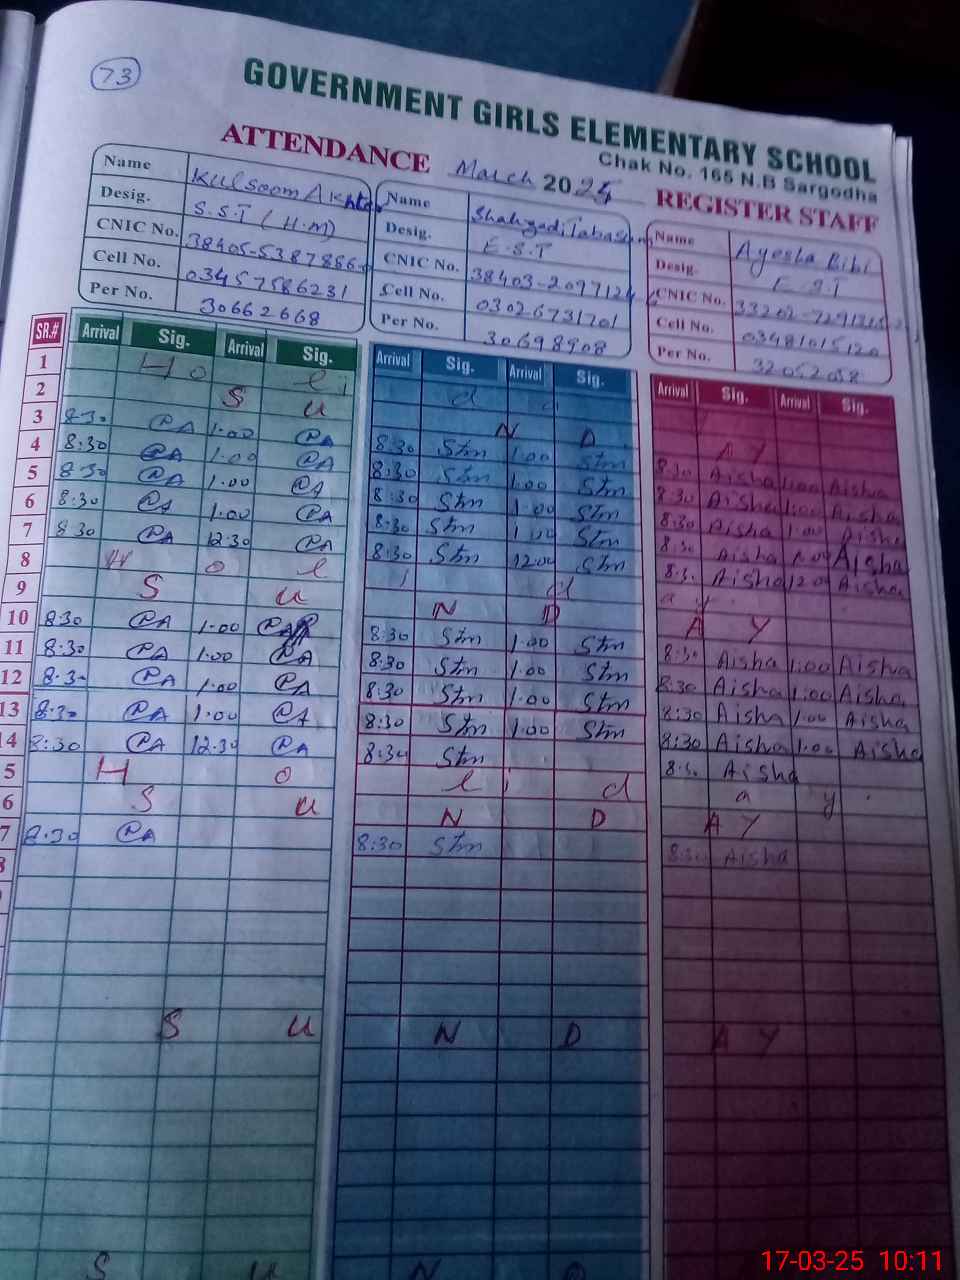 73
GOVERNMENT GIRLS ELEMENTARY SCHOOL
Chak No. 165 N.B Sargodha
ATTENDANCE March 2025 REGISTER STAFF
Name Kulsoom Akhtar
Desig. S.S.T (H.M)
CNIC No. 38405-5387886-
Cell No. 03457586231
Per No. 30662668
Name Shahzadi Tabasum
Desig. E.S.T
CNIC No. 38403-2097124
Cell No. 03026731701
Per No. 30698908
Name Ayesha Bibi
Desig. E.S.T
CNIC No.
Cell No. 03481015120
Per No.
SR.# Arrival Sig. Arrival Sig. Arrival Sig. Arrival Sig. Arrival Sig. Arrival Sig.
1 H o l i d a y
2 S U N D A Y
3 8:30 CA 1.00 CA 8:30 Stm 1.00 Stm 8:30 Aisha 1:00 Aisha
4 8:30 CA 1.00 CA 8:30 Stm 1.00 Stm 8:30 Aisha 1:00 Aisha
5 8:30 CA 1.00 CA 8:30 Stm 1.00 Stm 8:30 Aisha 1.00 Aisha
6 8:30 CA 1.00 CA 8:30 Stm 1.00 Stm 8:30 Aisha 1.00 Aisha
7 8:30 CA 12:30 CA 8:30 Stm 12:00 Stm 8:30 Aisha 12:0 Aisha
8 H o l i d a y
9 S U N D A Y
10 8:30 CA 1.00 CA 8:30 Stm 1.00 Stm 8:30 Aisha 1:00 Aisha
11 8:30 CA 1.00 CA 8:30 Stm 1.00 Stm 8:30 Aisha 1:00 Aisha
12 8:30 CA 1.00 CA 8:30 Stm 1.00 Stm 8:30 Aisha 1.00 Aisha
13 8:30 CA 1.00 CA 8:30 Stm 1.00 Stm 8:30 Aisha 1:00 Aisha
14 8:30 CA 12:30 CA 8:30 Stm 8:30 Aisha
5 H o l i d a y
6 S U N D A Y
7 8:30 CA 8:30 Stm 8:30 Aisha
8
S U N D A Y
S U N D
17-03-25 10:11